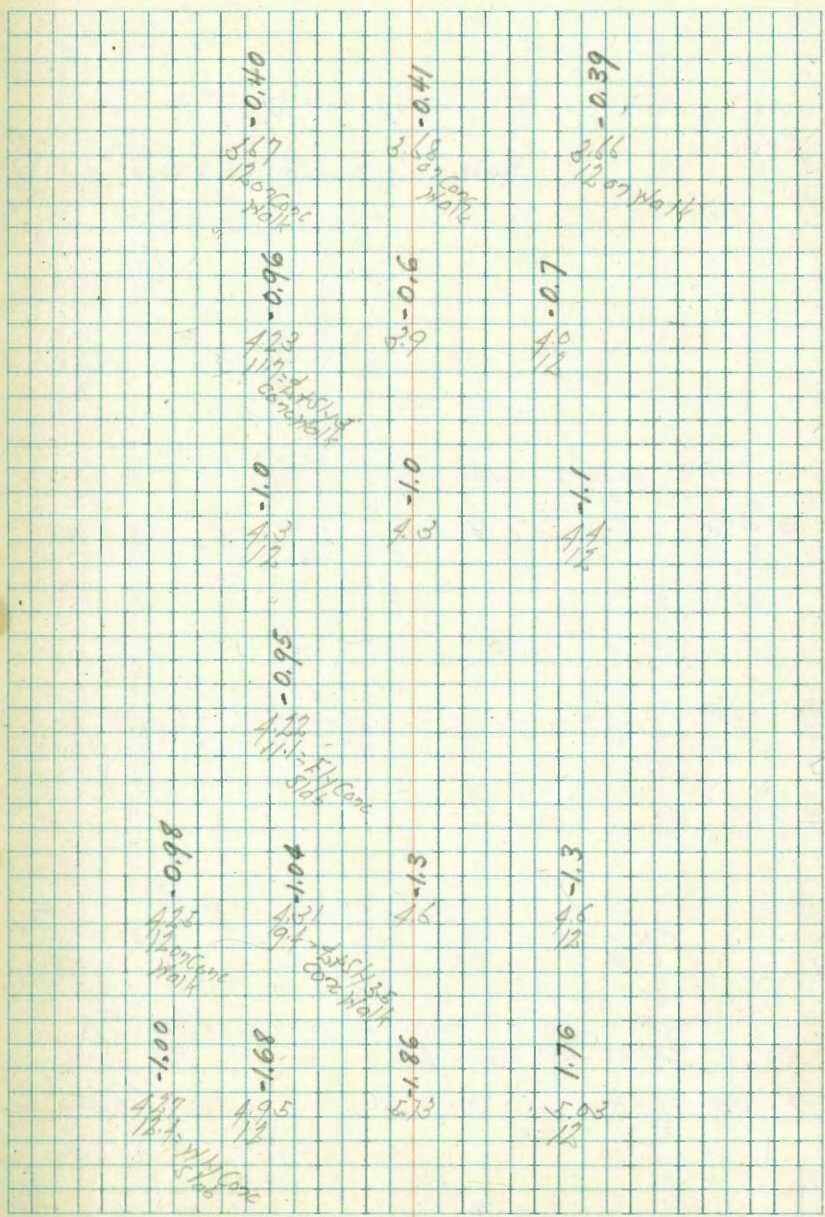 -0.40
3.67
12 on Conc
Walk
-0.41
3.68
on Conc
Walk
-0.39
3.66
12 on Walk
-0.96
4.23
Conc Walk
-0.6
3.9
-0.7
4.0
12
-1.0
4.3
12
-1.0
4.3
-1.1
4.4
12
-0.95
4.22
11.1 = Ely Conc
Slab
-0.98
4.25
12 on Conc
Walk
-1.04
4.31
9.4
Conc Walk
-1.3
4.6
-1.3
4.6
12
-1.00
4.27
12.1 = Wly Conc
Slab
-1.68
4.95
12
-1.86
1.76
5.03
12